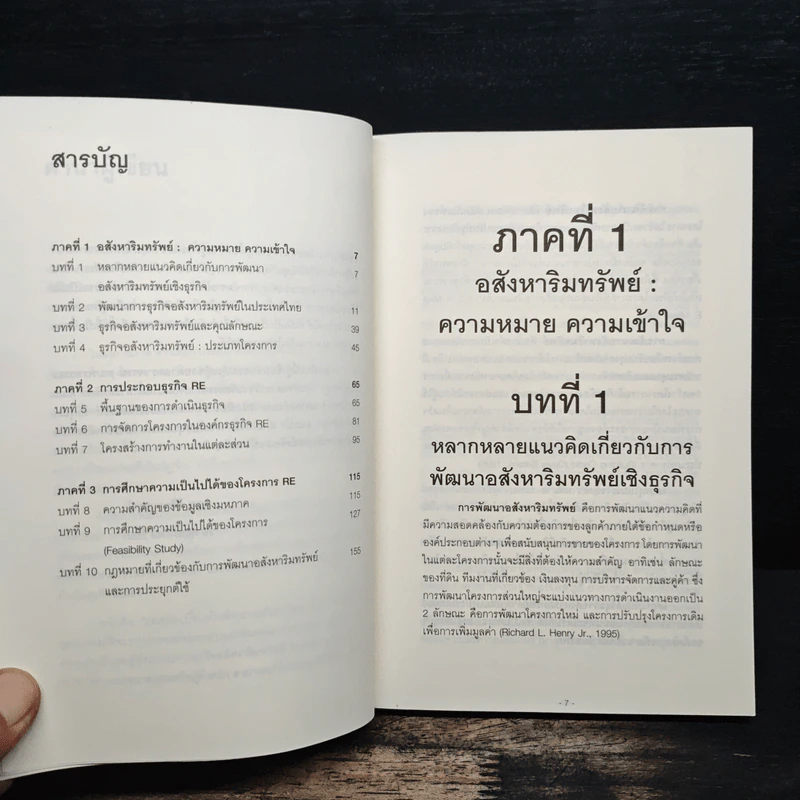 สารบัญ
ภาคที่ 1 อสังหาริมทรัพย์ : ความหมาย ความเข้าใจ 7
บทที่ 1 หลากหลายแนวคิดเกี่ยวกับการพัฒนา 7
อสังหาริมทรัพย์เชิงธุรกิจ
บทที่ 2 พัฒนาการธุรกิจอสังหาริมทรัพย์ในประเทศไทย 11
บทที่ 3 ธุรกิจอสังหาริมทรัพย์และคุณลักษณะ 39
บทที่ 4 ธุรกิจอสังหาริมทรัพย์ : ประเภทโครงการ 45
ภาคที่ 2 การประกอบธุรกิจ RE 65
บทที่ 5 พื้นฐานของการดำเนินธุรกิจ 65
บทที่ 6 การจัดการโครงการในองค์กรธุรกิจ RE 81
บทที่ 7 โครงสร้างการทำงานในแต่ละส่วน 95
ภาคที่ 3 การศึกษาความเป็นไปได้ของโครงการ RE 115
บทที่ 8 ความสำคัญของข้อมูลเชิงมหภาค 115
บทที่ 9 การศึกษาความเป็นไปได้ของโครงการ 127
(Feasibility Study)
บทที่ 10 กฎหมายที่เกี่ยวข้องกับการพัฒนาอสังหาริมทรัพย์ 155
และการประยุกต์ใช้
ภาคที่ 1
อสังหาริมทรัพย์ :
ความหมาย ความเข้าใจ
บทที่ 1
หลากหลายแนวคิดเกี่ยวกับการ
พัฒนาอสังหาริมทรัพย์เชิงธุรกิจ
การพัฒนาอสังหาริมทรัพย์ คือการพัฒนาแนวความคิดที่
มีความสอดคล้องกับความต้องการของลูกค้าภายใต้ข้อกำหนดหรือ
องค์ประกอบต่างๆ เพื่อสนับสนุนการขายของโครงการ โดยการพัฒนา
ในแต่ละโครงการนั้นจะมีสิ่งที่ต้องให้ความสำคัญ อาทิเช่น ลักษณะ
ของที่ดิน ทีมงานที่เกี่ยวข้อง เงินลงทุน การบริหารจัดการและคู่ค้า ซึ่ง
การพัฒนาโครงการส่วนใหญ่จะแบ่งแนวทางการดำเนินงานออกเป็น
2 ลักษณะ คือการพัฒนาโครงการใหม่ และการปรับปรุงโครงการเดิม
เพื่อการเพิ่มมูลค่า (Richard L. Henry Jr., 1995)
- 7 -